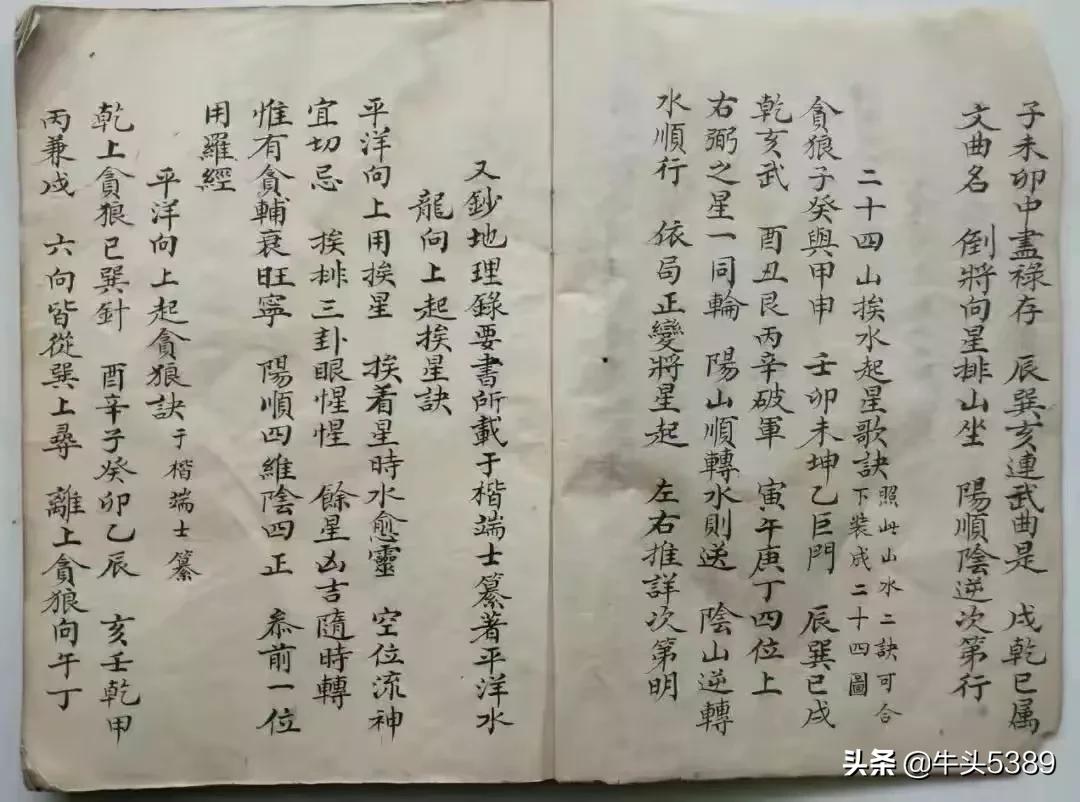 子未卯中盡祿存 辰巽亥連武曲是 戌乾巳属
文曲名 倒將向星排山坐 陽順陰逆次第行
二十四山挨水起星歌訣 照此山水二訣可合
下裝成二十四圖
貪狼子癸與甲申 壬卯未坤乙巨門 辰巽巳戌
乾亥武 酉丑艮丙辛破軍 寅午庚丁四位上
右弼之星一同輪 陽山順轉水則逆 陰山逆轉
水順行 依局正變將星起 左右推詳次第明
又鈔地理錄要書所載于楷端士纂著平洋水
龍向上起挨星訣
平洋向上用挨星 挨着星時水愈靈 空位流神
宜切忌 挨排三卦眼惺惺 餘星凶吉隨時轉
惟有貪輔衰旺寧 陽順四維陰四正 恭前一位
用羅經
平洋向上起貪狼訣 于楷端士纂
乾上貪狼巳巽針 酉辛子癸卯乙辰 亥壬乾甲
丙兼戌 六向皆從巽上尋 離上貪狼向午丁
头条 @牛头5389